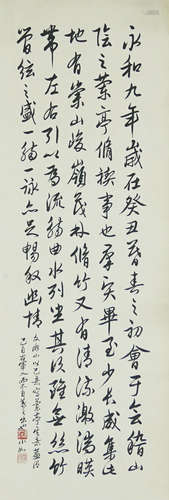 永和九年歲在癸丑暮春之初會于會稽山
陰之蘭亭脩禊事也羣賢畢至少長咸集此
地有崇山峻嶺茂林脩竹又有清流激湍暎
帶左右引以為流觴曲水列坐其次雖無絲竹
管弦之盛一觴一詠亦足暢敘幽情